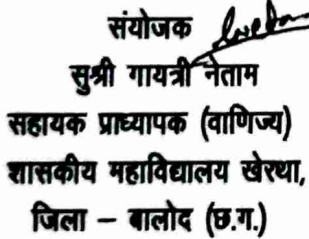 संयोजक
सुश्री गायत्री नेताम
सहायक प्राध्यापक (वाणिज्य)
शासकीय महाविद्यालय खेरथा,
जिला – बालोद (छ.ग.)